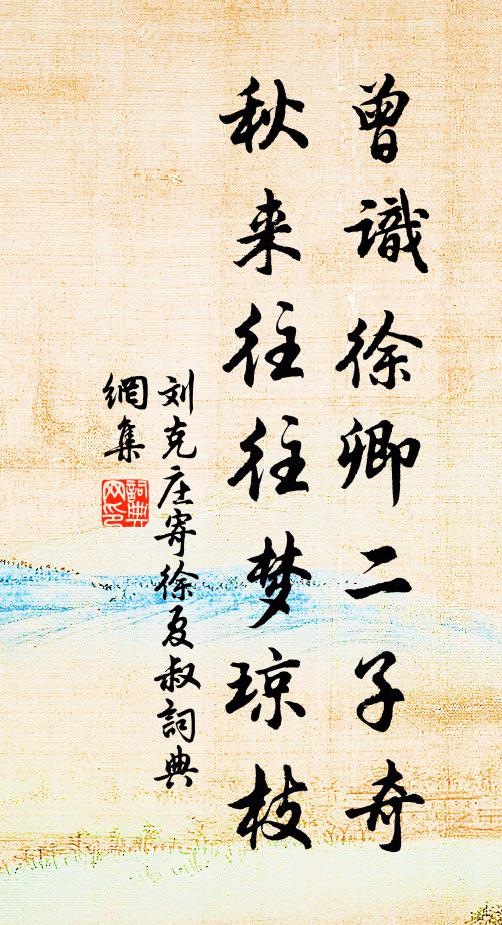 曾識徐卿二子奇
秋来往往梦琼枝
刘克庄寄徐夏叔詞典
網集
詞典
网印